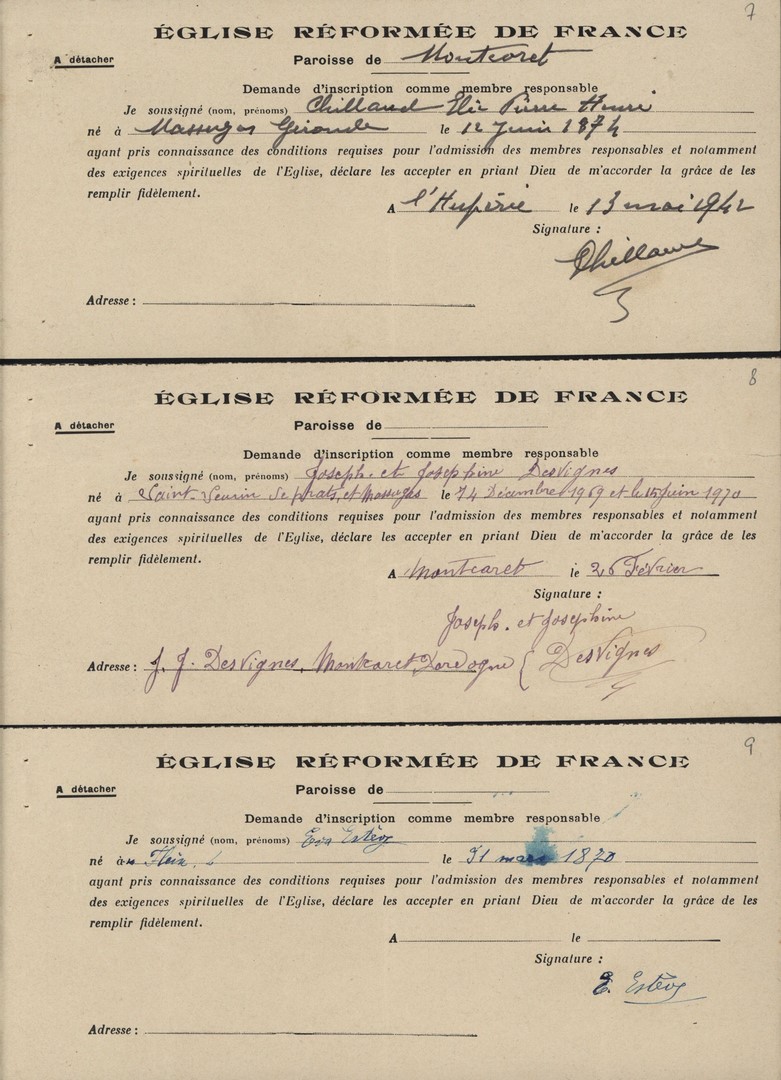 7
ÉGLISE RÉFORMÉE DE FRANCE
A détacher Paroisse de Montcaret
Demande d'inscription comme membre responsable
Je soussigné (nom, prénoms) Chillaud Elie Pierre Henri
né à Massugas Gironde le 12 Juin 1874
ayant pris connaissance des conditions requises pour l'admission des membres responsables et notamment
des exigences spirituelles de l'Eglise, déclare les accepter en priant Dieu de m'accorder la grâce de les
remplir fidèlement.
A le 13 mai 1942
Signature :
Chillaud
Adresse :
8
ÉGLISE RÉFORMÉE DE FRANCE
A détacher Paroisse de
Demande d'inscription comme membre responsable
Je soussigné (nom, prénoms) Joseph. et Josephine DesVignes
né à Saint-Seurin de prats, et Massugas le Décembre 1969 et le 15 juin 1970
ayant pris connaissance des conditions requises pour l'admission des membres responsables et notamment
des exigences spirituelles de l'Eglise, déclare les accepter en priant Dieu de m'accorder la grâce de les
remplir fidèlement.
A Montcaret le 26 Février
Signature :
Joseph. et Josephine
Adresse : J. J. DesVignes, Montcaret, Dordogne { DesVignes
9
ÉGLISE RÉFORMÉE DE FRANCE
A détacher Paroisse de
Demande d'inscription comme membre responsable
Je soussigné (nom, prénoms) Eva Estève
né à le 31 mars 1870
ayant pris connaissance des conditions requises pour l'admission des membres responsables et notamment
des exigences spirituelles de l'Eglise, déclare les accepter en priant Dieu de m'accorder la grâce de les
remplir fidèlement.
A le
Signature :
E. Estève
Adresse :